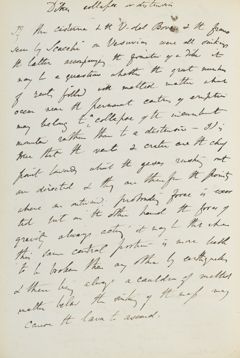 Dikes collapse or distension
If the caverns & the V. del Bove & the
seen by Scacchi on Vesuvius were all sinkings
the latter accompanying the formation of a dike it
may be a question whether the great number
of rents, filled with melted matter which
occur near the permanent centres of eruption
may belong to collapse of the incumbent
mountain rather than to a distension
true that the vent & crater are the chief
point towards which the gases rushing out
are directed & they are therefore the points
where an
but on the other hand the force of
gravity always acting, it may be that when
this same central position is more liable
to be broken than any other by earthquakes
& there being always a cauldron of melted
matter below the sinking of the mass may
cause the lava to ascend.